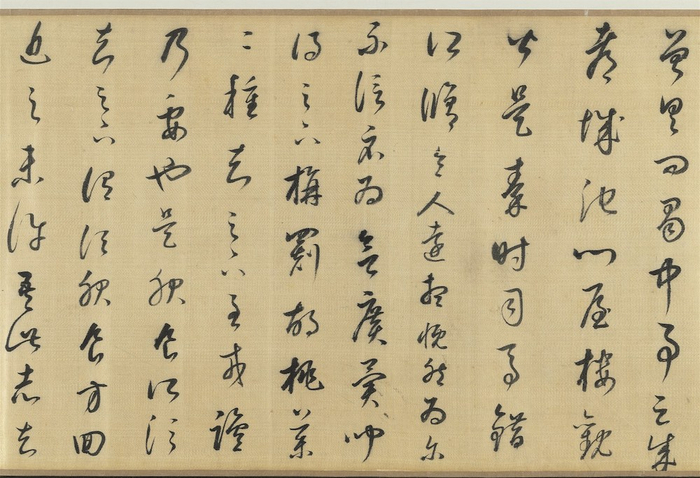 曾具問蜀中事云成
都城池門屋樓觀
皆是秦時司馬錯
所脩令人遠想慨然為尔
不信示為欲廣異聞
得足下旃罽胡桃藥
二種知足下至戎鹽
乃要也是服食所須
知足下謂須服食方回
近之未許吾此志知